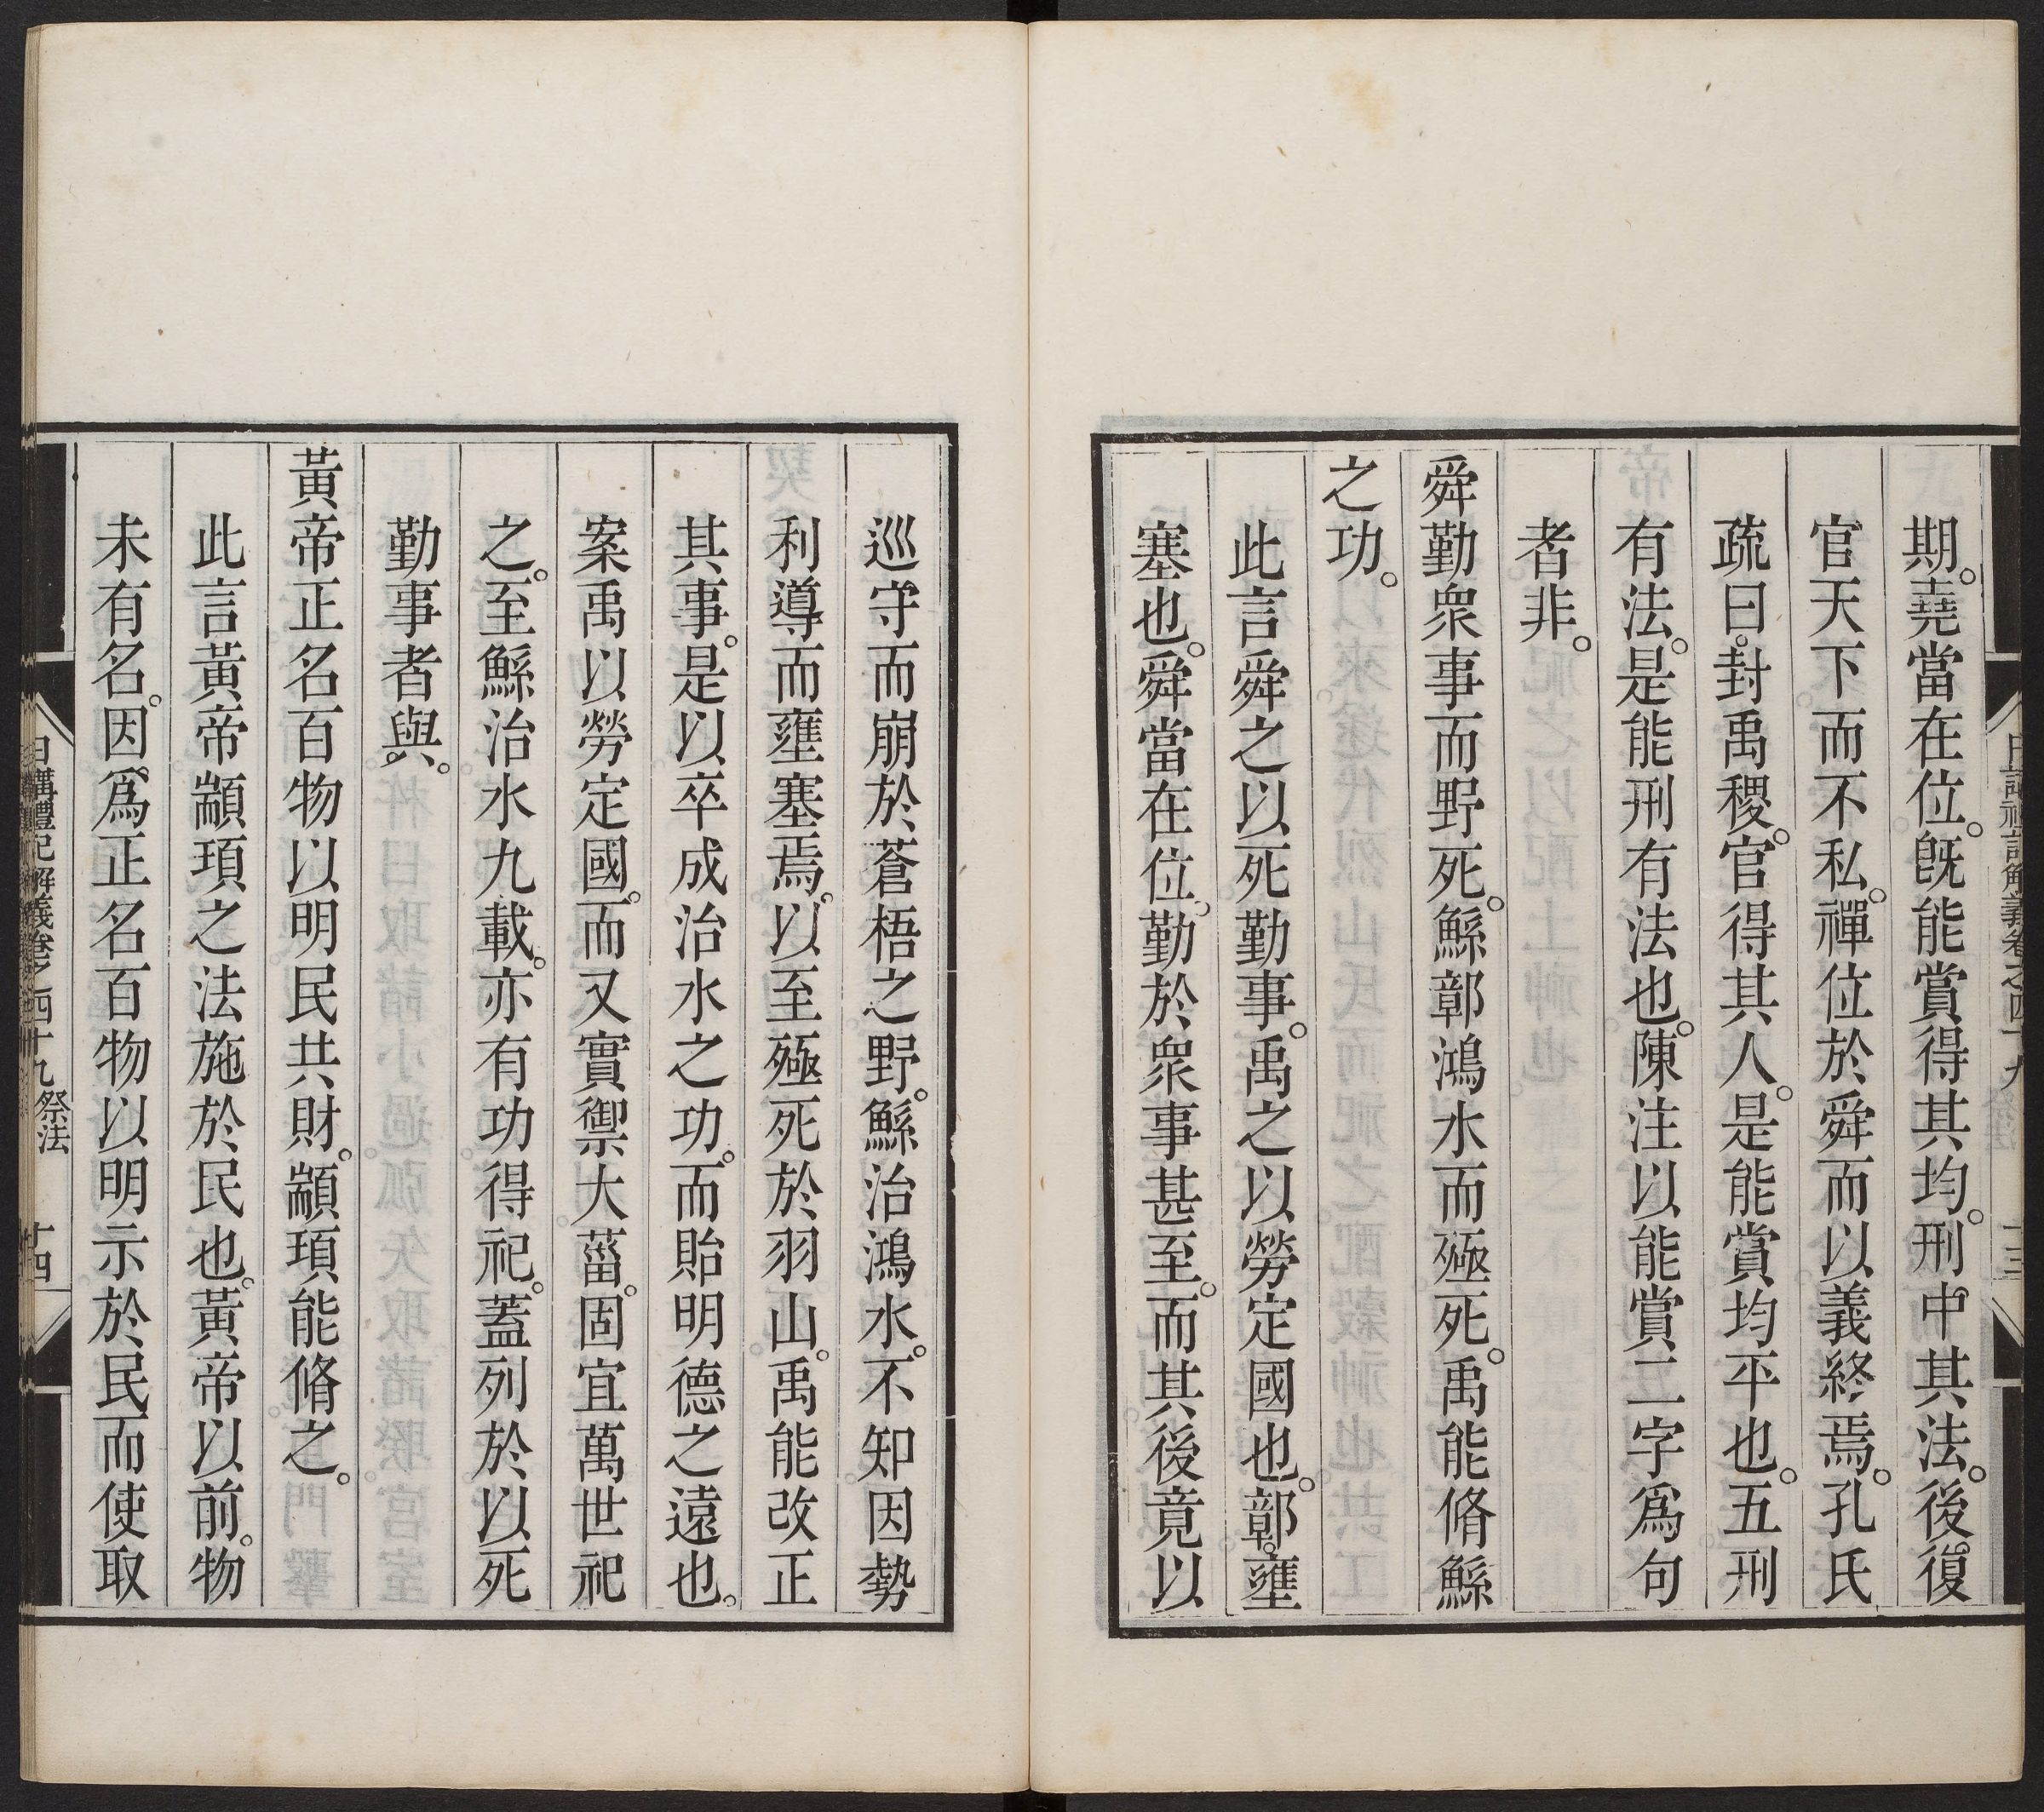 期。堯當在位。旣能賞得其均。刑中其法。後復
官天下而不私。禪位於舜而以義終焉。孔氏
疏曰。封禹稷。官得其人。是能賞均平也。五刑
有法。是能刑有法也。陳注以能賞二字爲句
者非。
舜勤衆事而野死。鯀鄣鴻水而殛死。禹能脩鯀
之功。
此言舜之以死勤事。禹之以勞定國也。鄣。壅
塞也。舜當在位。勤於衆事甚至。而其後竟以
巡守而崩於蒼梧之野。鯀治鴻水。不知因勢
利導而壅塞焉。以至殛死於羽山。禹能改正
其事。是以卒成治水之功。而貽明德之遠也。
案禹以勞定國。而又實禦大菑。固宜萬世祀
之。至鯀治水九載。亦有功得祀。蓋列於以死
勤事者與。
黃帝正名百物以明民共財。顓頊能脩之。
此言黃帝顓頊之法施於民也。黃帝以前。物
未有名。因爲正名百物以明示於民而使取
日講禮記解義卷之四十九 祭法 十四